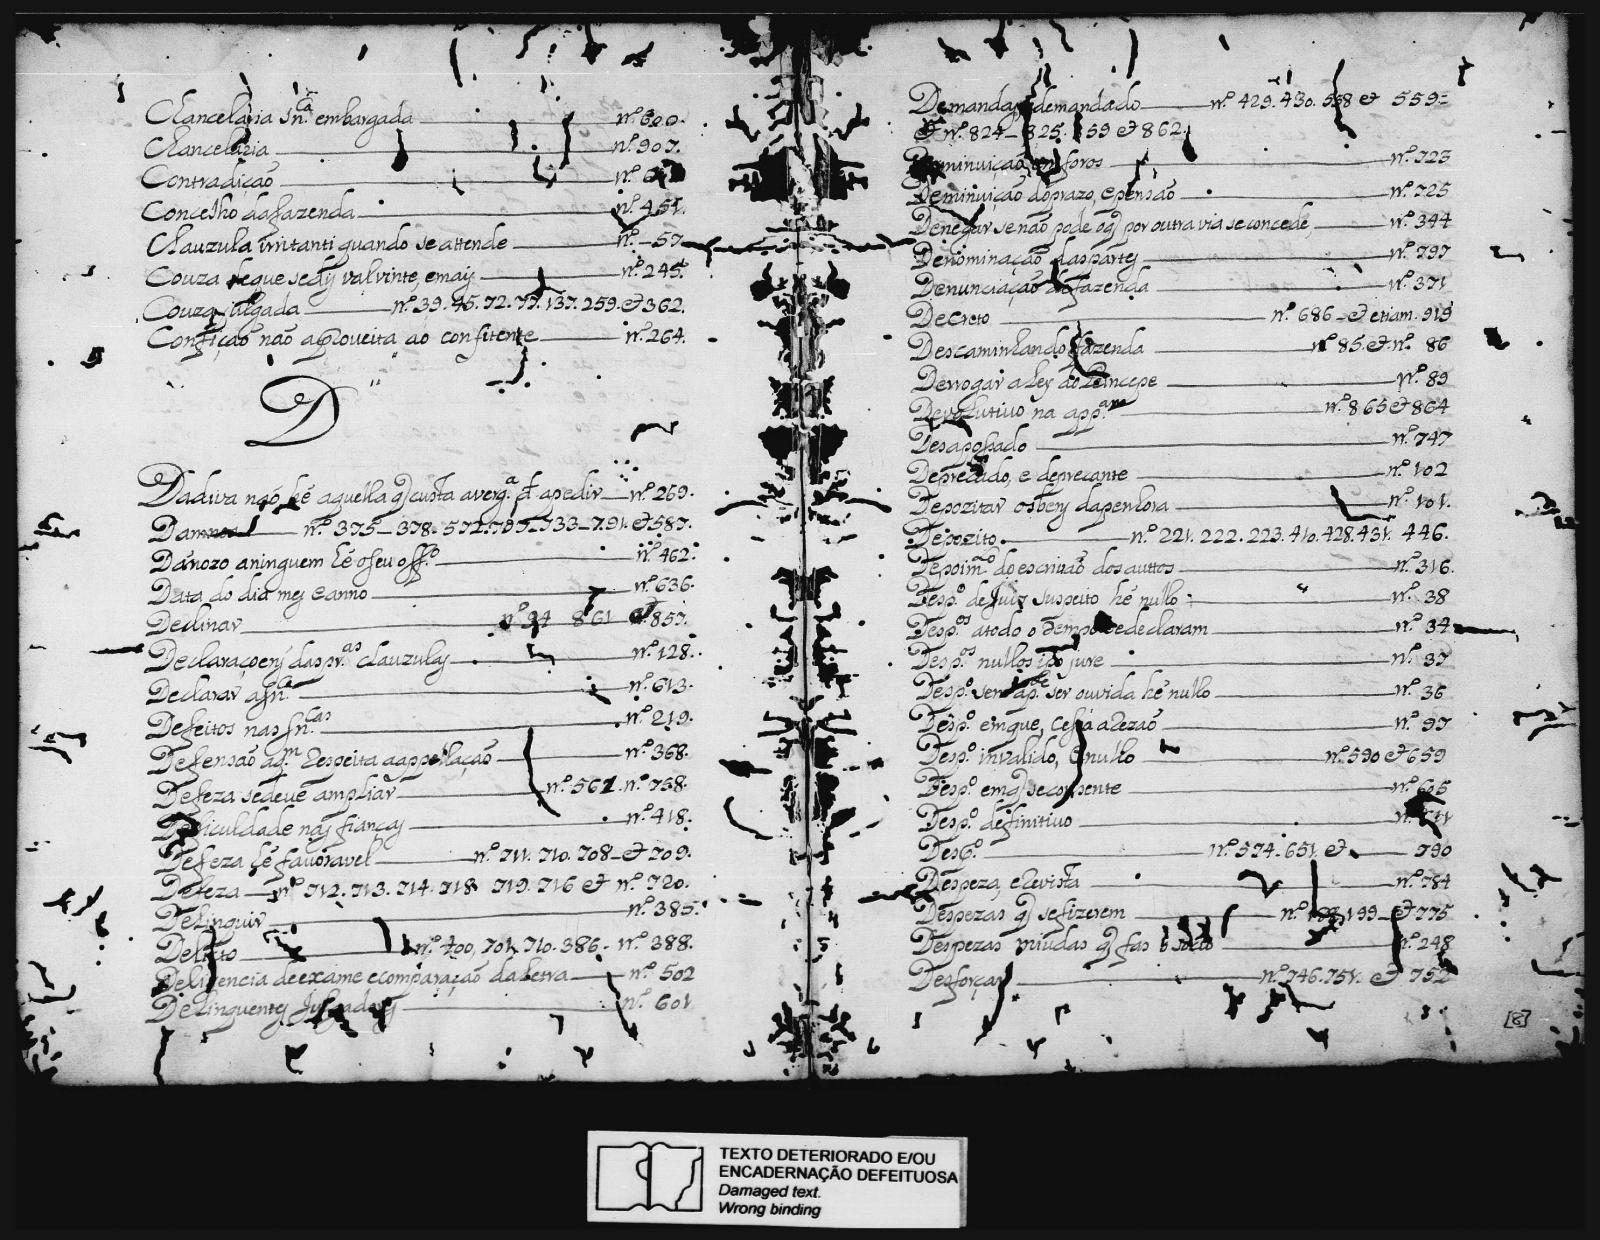 Chancelaria Sn.ca embargada nº 600.
Chancelaria nº 907.
Contradição nº
Concelho dafazenda nº 451.
Clauzula irritanti quando se attende nº 57
Couza sequesedis valvinte, emais nº 245.
Couza julgada nº 39. 45. 72. 77. 137. 259. et 362.
Confição não aproveita ao confitente nº 264.
D
Dadiva não hé aquella q̃ custa averg.ª d apedir nº 269.
Damnos nº 375 – 378. 572. 707 – 733 – 791. et 587.
Danozo aninguem hé oseu off.º nº 462.
Data do dia mes e anno nº 636.
Declinar nº 94 861 et 857.
Declaraçoens daspr.as clauzulas nº 128.
Declarar asn.ca nº 613.
Defeitos nas sn.cas nº 219.
Defensão aq.m Respeita aappellação nº 368.
Defeza sedeve ampliar nº 561. nº 758.
Dificuldade nas fianças nº 418.
Defeza hé favoravel nº 711. 710. 708 – et 709.
Defeza nº 712. 713. 714. 718 719. 716 et nº 720.
Delinquir nº 385.
Delicto nº 700, 701. 710. 386 – nº 388.
Deligencia deexame ecomparação daletra nº 502
Delinquentes Julgados nº 601
Demanda, demandado nº 429. 430. 558 et 559 =
et nº 824 – 825. 859 et 862.
Deminuição em foros nº 723
Deminuição doprazo, epensão nº 725
Denegar senão pode oq̃ por outra via seconcede, nº 344
Denominação daspartes nº 797
Denunciação da fazenda nº 371
Decreto nº 686 – et etiam. 919
Descaminhando fazenda nº 85. et nº 86
Derrogar a Ley do Princepe nº 89
Devolutivo na app.am nº 865 et 864
Desapossado nº 747
Deprecado, e deprecante nº 102
Depozitar osbens dapenhora nº 101.
Depozito nº 221. 222. 223. 410. 428. 431. 446.
Depoim.to do escrivão dos auttos nº 316.
Desp.º de Juiz suspeito hé nullo nº 38
Desp.os atodo o tempo sedeclaram nº 34
Desp.os nullos ipso jure nº 37
Desp.º sem ap.te ser ouvida hé nullo nº 36
Desp.º emque, Cessa a Rezão nº 97
Desp.º invalido, e nullo nº 590 et 659
Desp.º emq̃ seconsente nº 605
Desp.º definitivo nº
Desp.º nº 574. 651. et 790
Despeza, e Revista nº 784
Despezas q̃ sefizerem nº 199 – et 775
Despezas miudas q̃ fas o socio nº 248
Desforçar nº 746. 751. et 752
[8]
TEXTO DETERIORADO E/OU
ENCADERNAÇÃO DEFEITUOSA
Damaged text.
Wrong binding